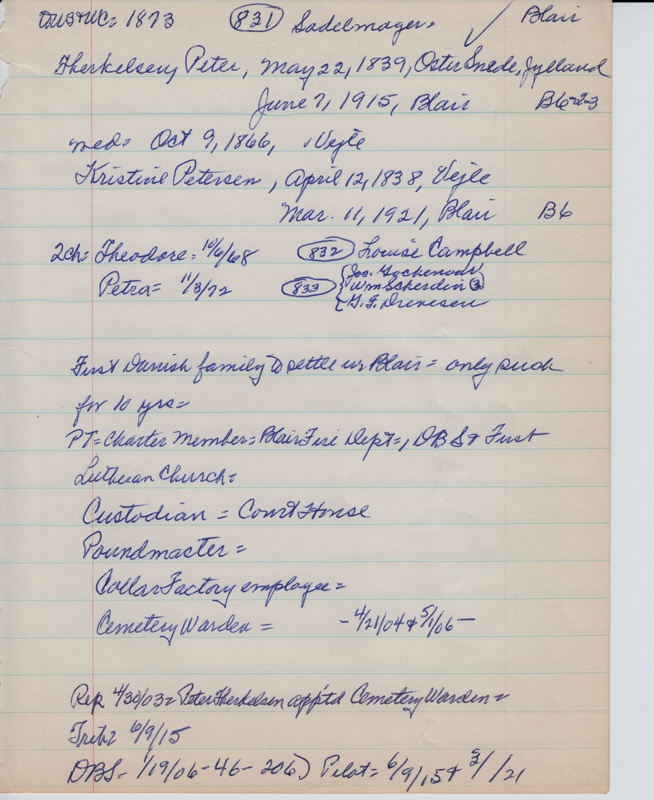 DUS+WC= 1873 831 Sadelmager= Blair
Therkelsen, Peter, May 22, 1839, Oster Snede, Jylland
June 7, 1915, Blair B6-2-3
med= Oct 9, 1866, Vejle
Kristine Petersen, April 12, 1838, Vejle
Mar. 11, 1921, Blair B6
2ch= Theodore= 10/6/68 832 Louise Campbell
Petra= 11/3/72 833 Jos.
Wm Scherdin 3
G. F.
First Danish family to settle in Blair= only such
for 10 yrs=
PT= Charter Member= Blair Fire Dept=, DBS+ First
Lutheran Church=
Custodian = Court House
Poundmaster =
Collar Factory employee=
Cemetery Warden = -4/21/04 + 5/1/06-
Rep 4/30/03= Peter Therkelsen app'td Cemetery Warden=
Trib= 6/9/15
DBS- 1/19/06-46-206) Pilot= 6/9/15 + 3/ /21